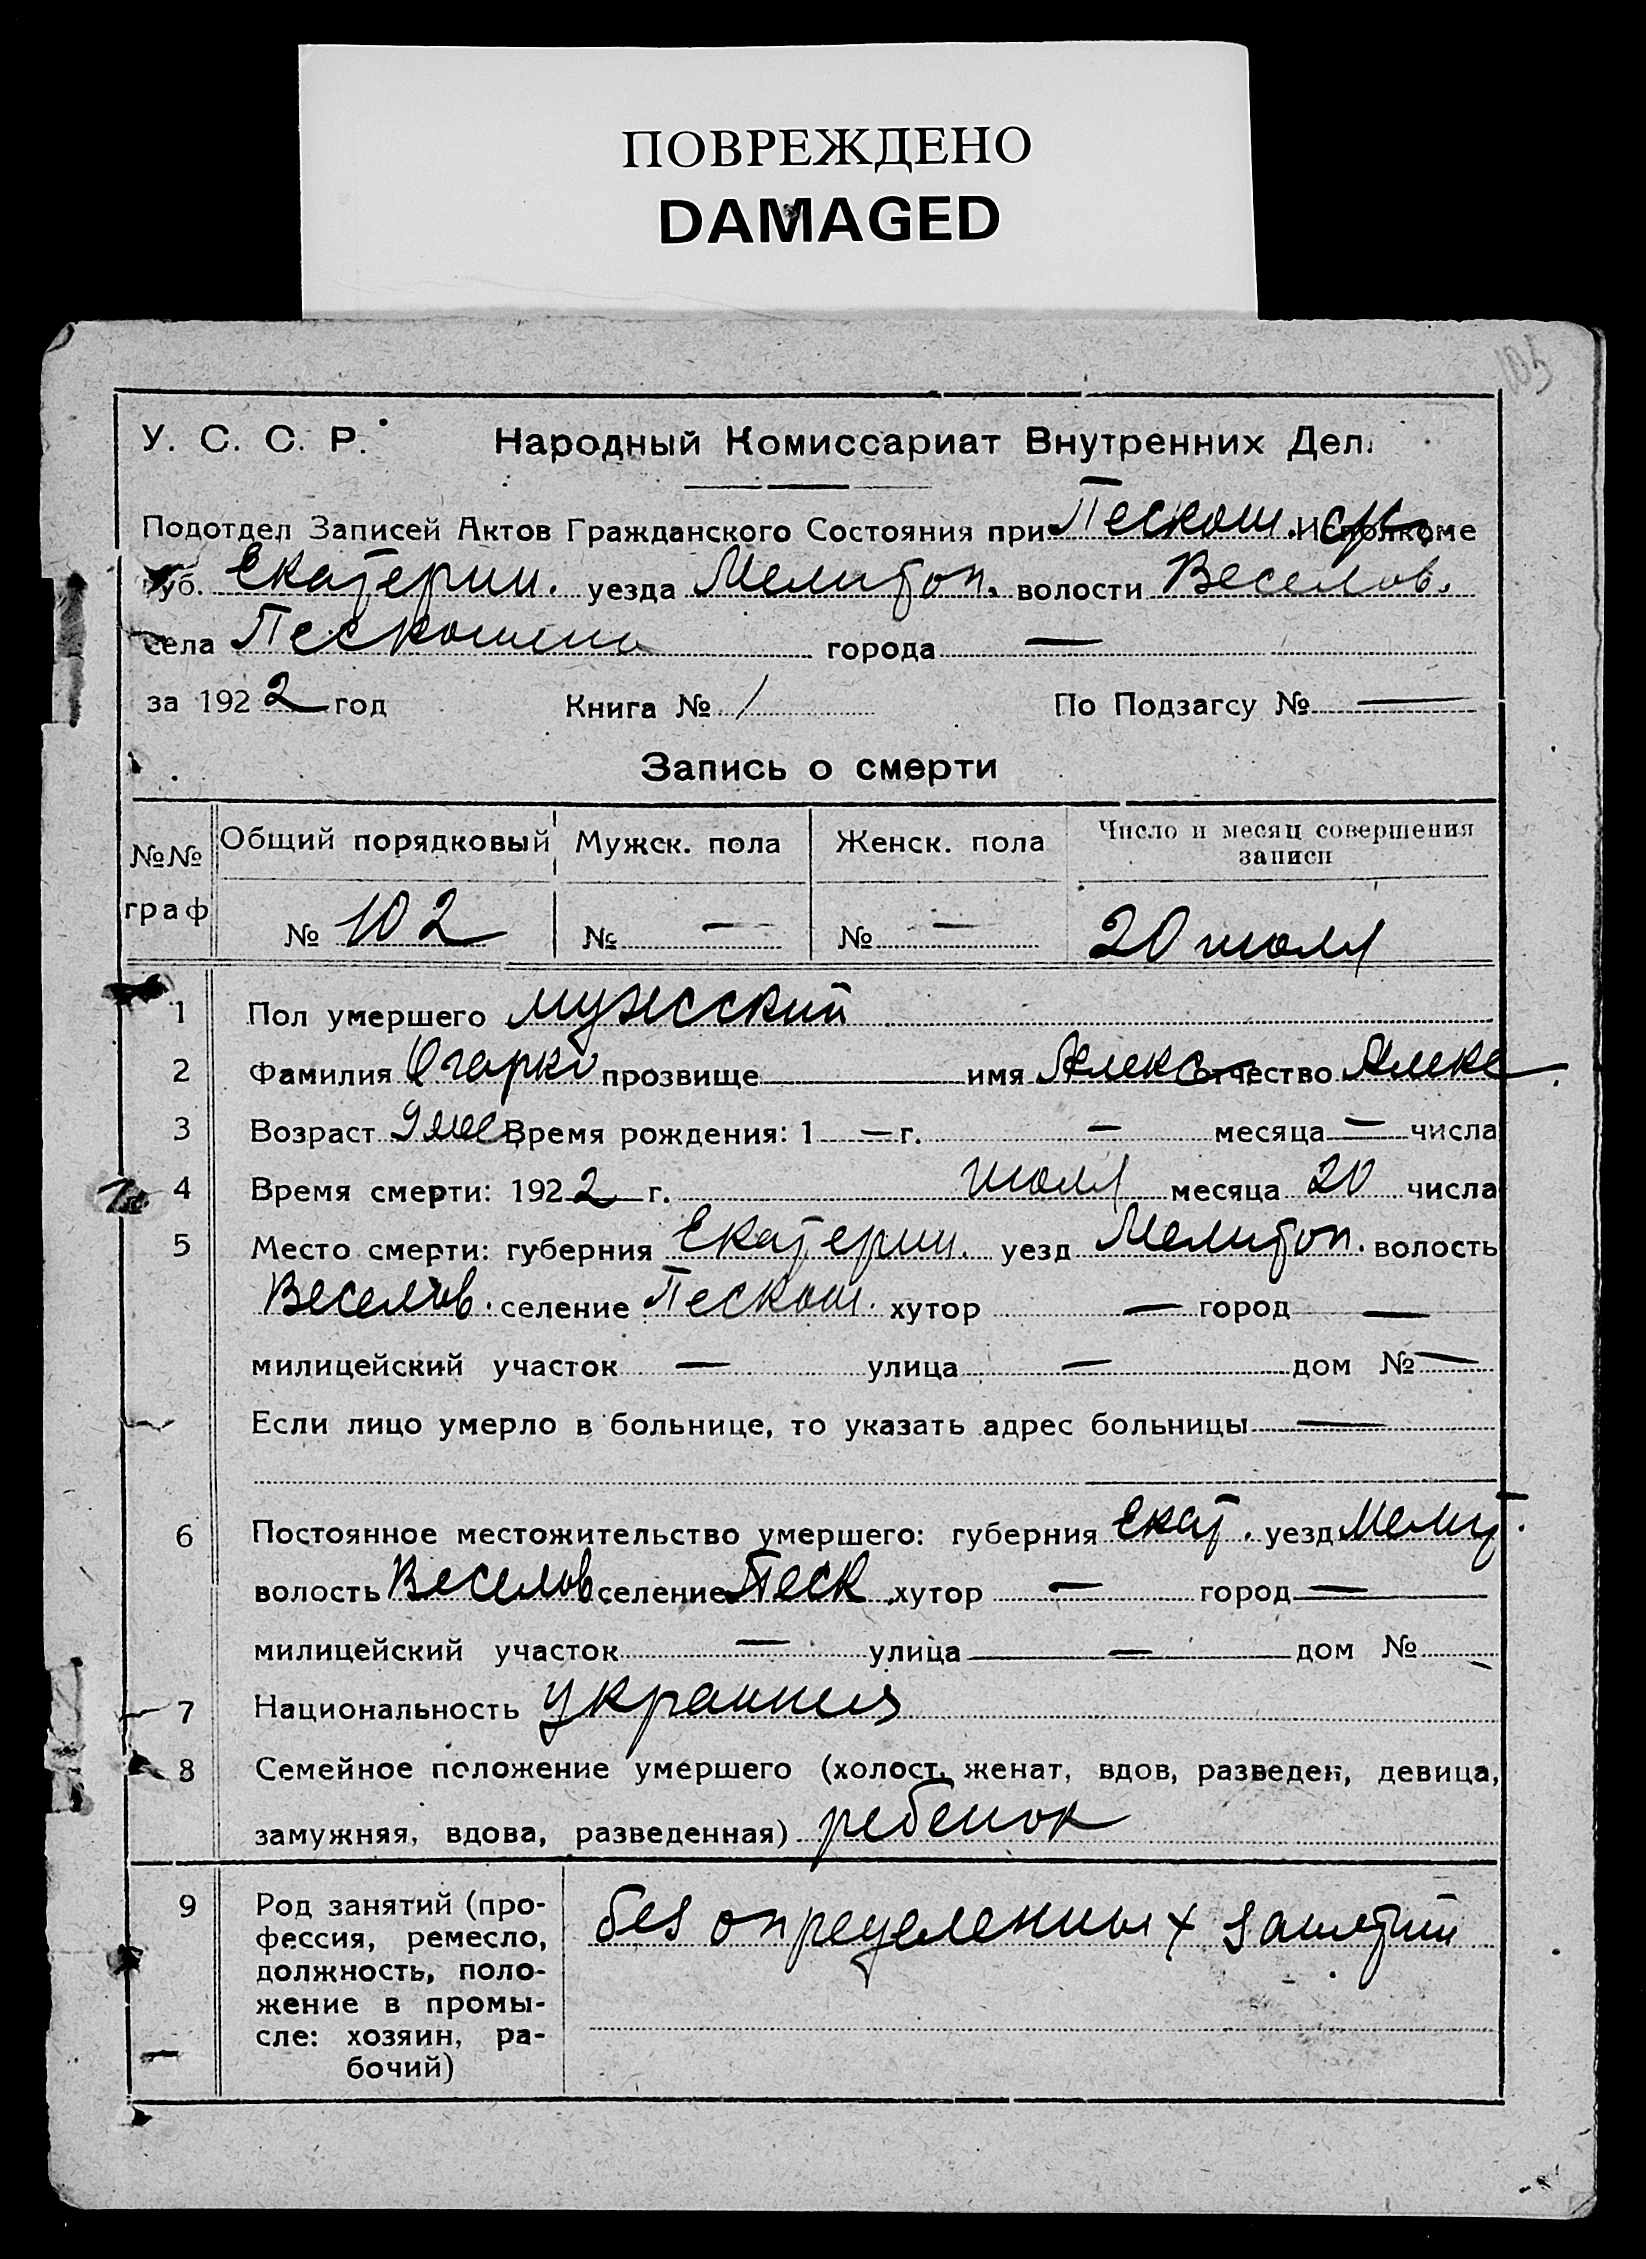 ПОВРЕЖДЕНО
DAMAGED
105
У. С. С. Р. Народный Комиссариат Внутренних Дел.
Подотдел Записей Актов Гражданского Состояния при Пескош. Исполкоме
губ. Екатерин. уезда Мелитоп. волости Веселов.
села Пескошино города —
за 1922 год Книга № 1 По Подзагсу № —
Запись о смерти
№№ граф Общий порядковый Мужск. пола Женск. пола Число и месяц совершения записи
№ 102 № — № — 20 июля
1 Пол умершего мужсский
2 Фамилия Огарко прозвище имя Алекс отчество Алекс
3 Возраст 9 мес Время рождения: 1 — г. — месяца — числа
4 Время смерти: 1922 г. июля месяца 20 числа
5 Место смерти: губерния Екатерин. уезд Мелитоп. волость
Веселов. селение Пескош. хутор — город —
милицейский участок — улица — дом № —
Если лицо умерло в больнице, то указать адрес больницы —
6 Постоянное местожительство умершего: губерния Екат. уезд Мелит.
волость Веселов селение Песк. хутор — город —
милицейский участок — улица — дом № —
7 Национальность
8 Семейное положение умершего (холост, женат, вдов, разведен, девица,
замужняя, вдова, разведенная) ребенок
9 Род занятий (про-
фессия, ремесло,
должность, поло-
жение в промы-
сле: хозяин, ра-
бочий)
без определенных занятий